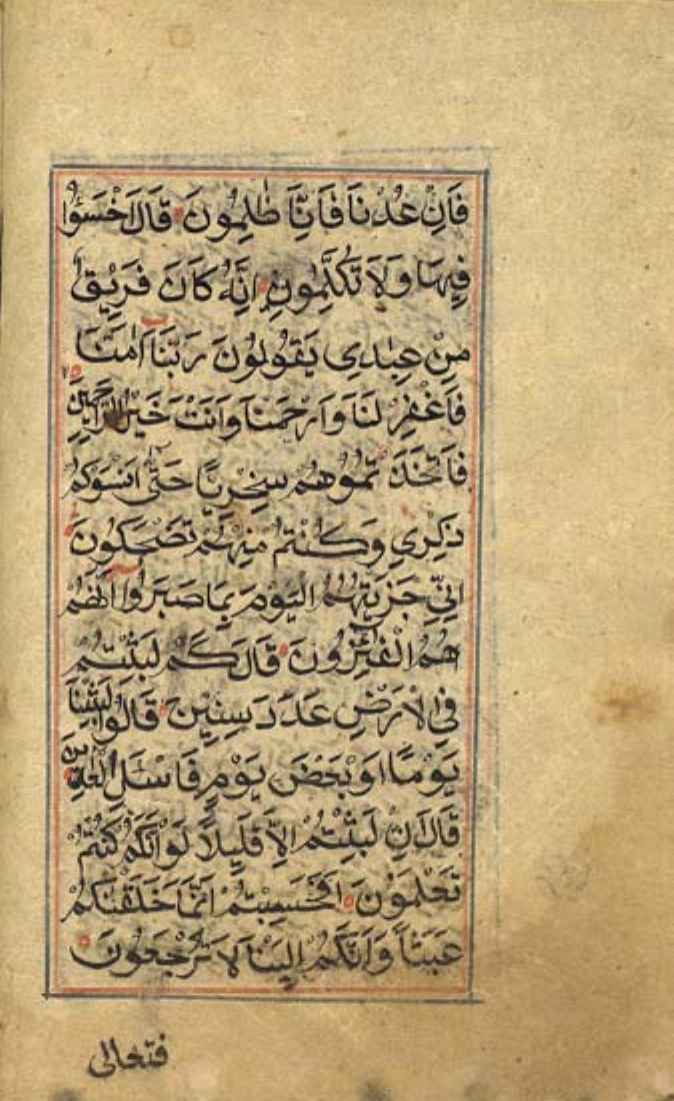 فَاِنْ عُدْنَا فَاِنَّا ظٰلِمُونَ قَالَ اخْسَؤُا
فِيهَا وَلَا تُكَلِّمُونِ اِنَّهُ كَانَ فَرِيقٌ
مِنْ عِبٰدِى يَقُولُونَ رَبَّنَا اٰمَنَّا
فَاغْفِرْ لَنَا وَارْحَمْنَا وَاَنْتَ خَيْرُ الرّٰحِمِينَ
فَاتَّخَذْتُمُوهُمْ سِخْرِيًّا حَتّٰى اَنْسَوْكُمْ
ذِكْرِى وَكُنْتُمْ مِنْهُمْ تَضْحَكُونَ
اِنِّى جَزَيْتُهُمُ الْيَوْمَ بِمَا صَبَرُوا اَنَّهُمْ
هُمُ الْفَائِزُونَ قَالَ كَمْ لَبِثْتُمْ
فِى الْاَرْضِ عَدَدَ سِنِينَ قَالُوا لَبِثْنَا
يَوْمًا اَوْ بَعْضَ يَوْمٍ فَاسْئَلِ الْعَادِّينَ
قَالَ اِنْ لَبِثْتُمْ اِلَّا قَلِيلًا لَوْ اَنَّكُمْ كُنْتُمْ
تَعْلَمُونَ اَفَحَسِبْتُمْ اَنَّمَا خَلَقْنٰكُمْ
عَبَثًا وَاَنَّكُمْ اِلَيْنَا لَا تُرْجَعُونَ
فتعالى